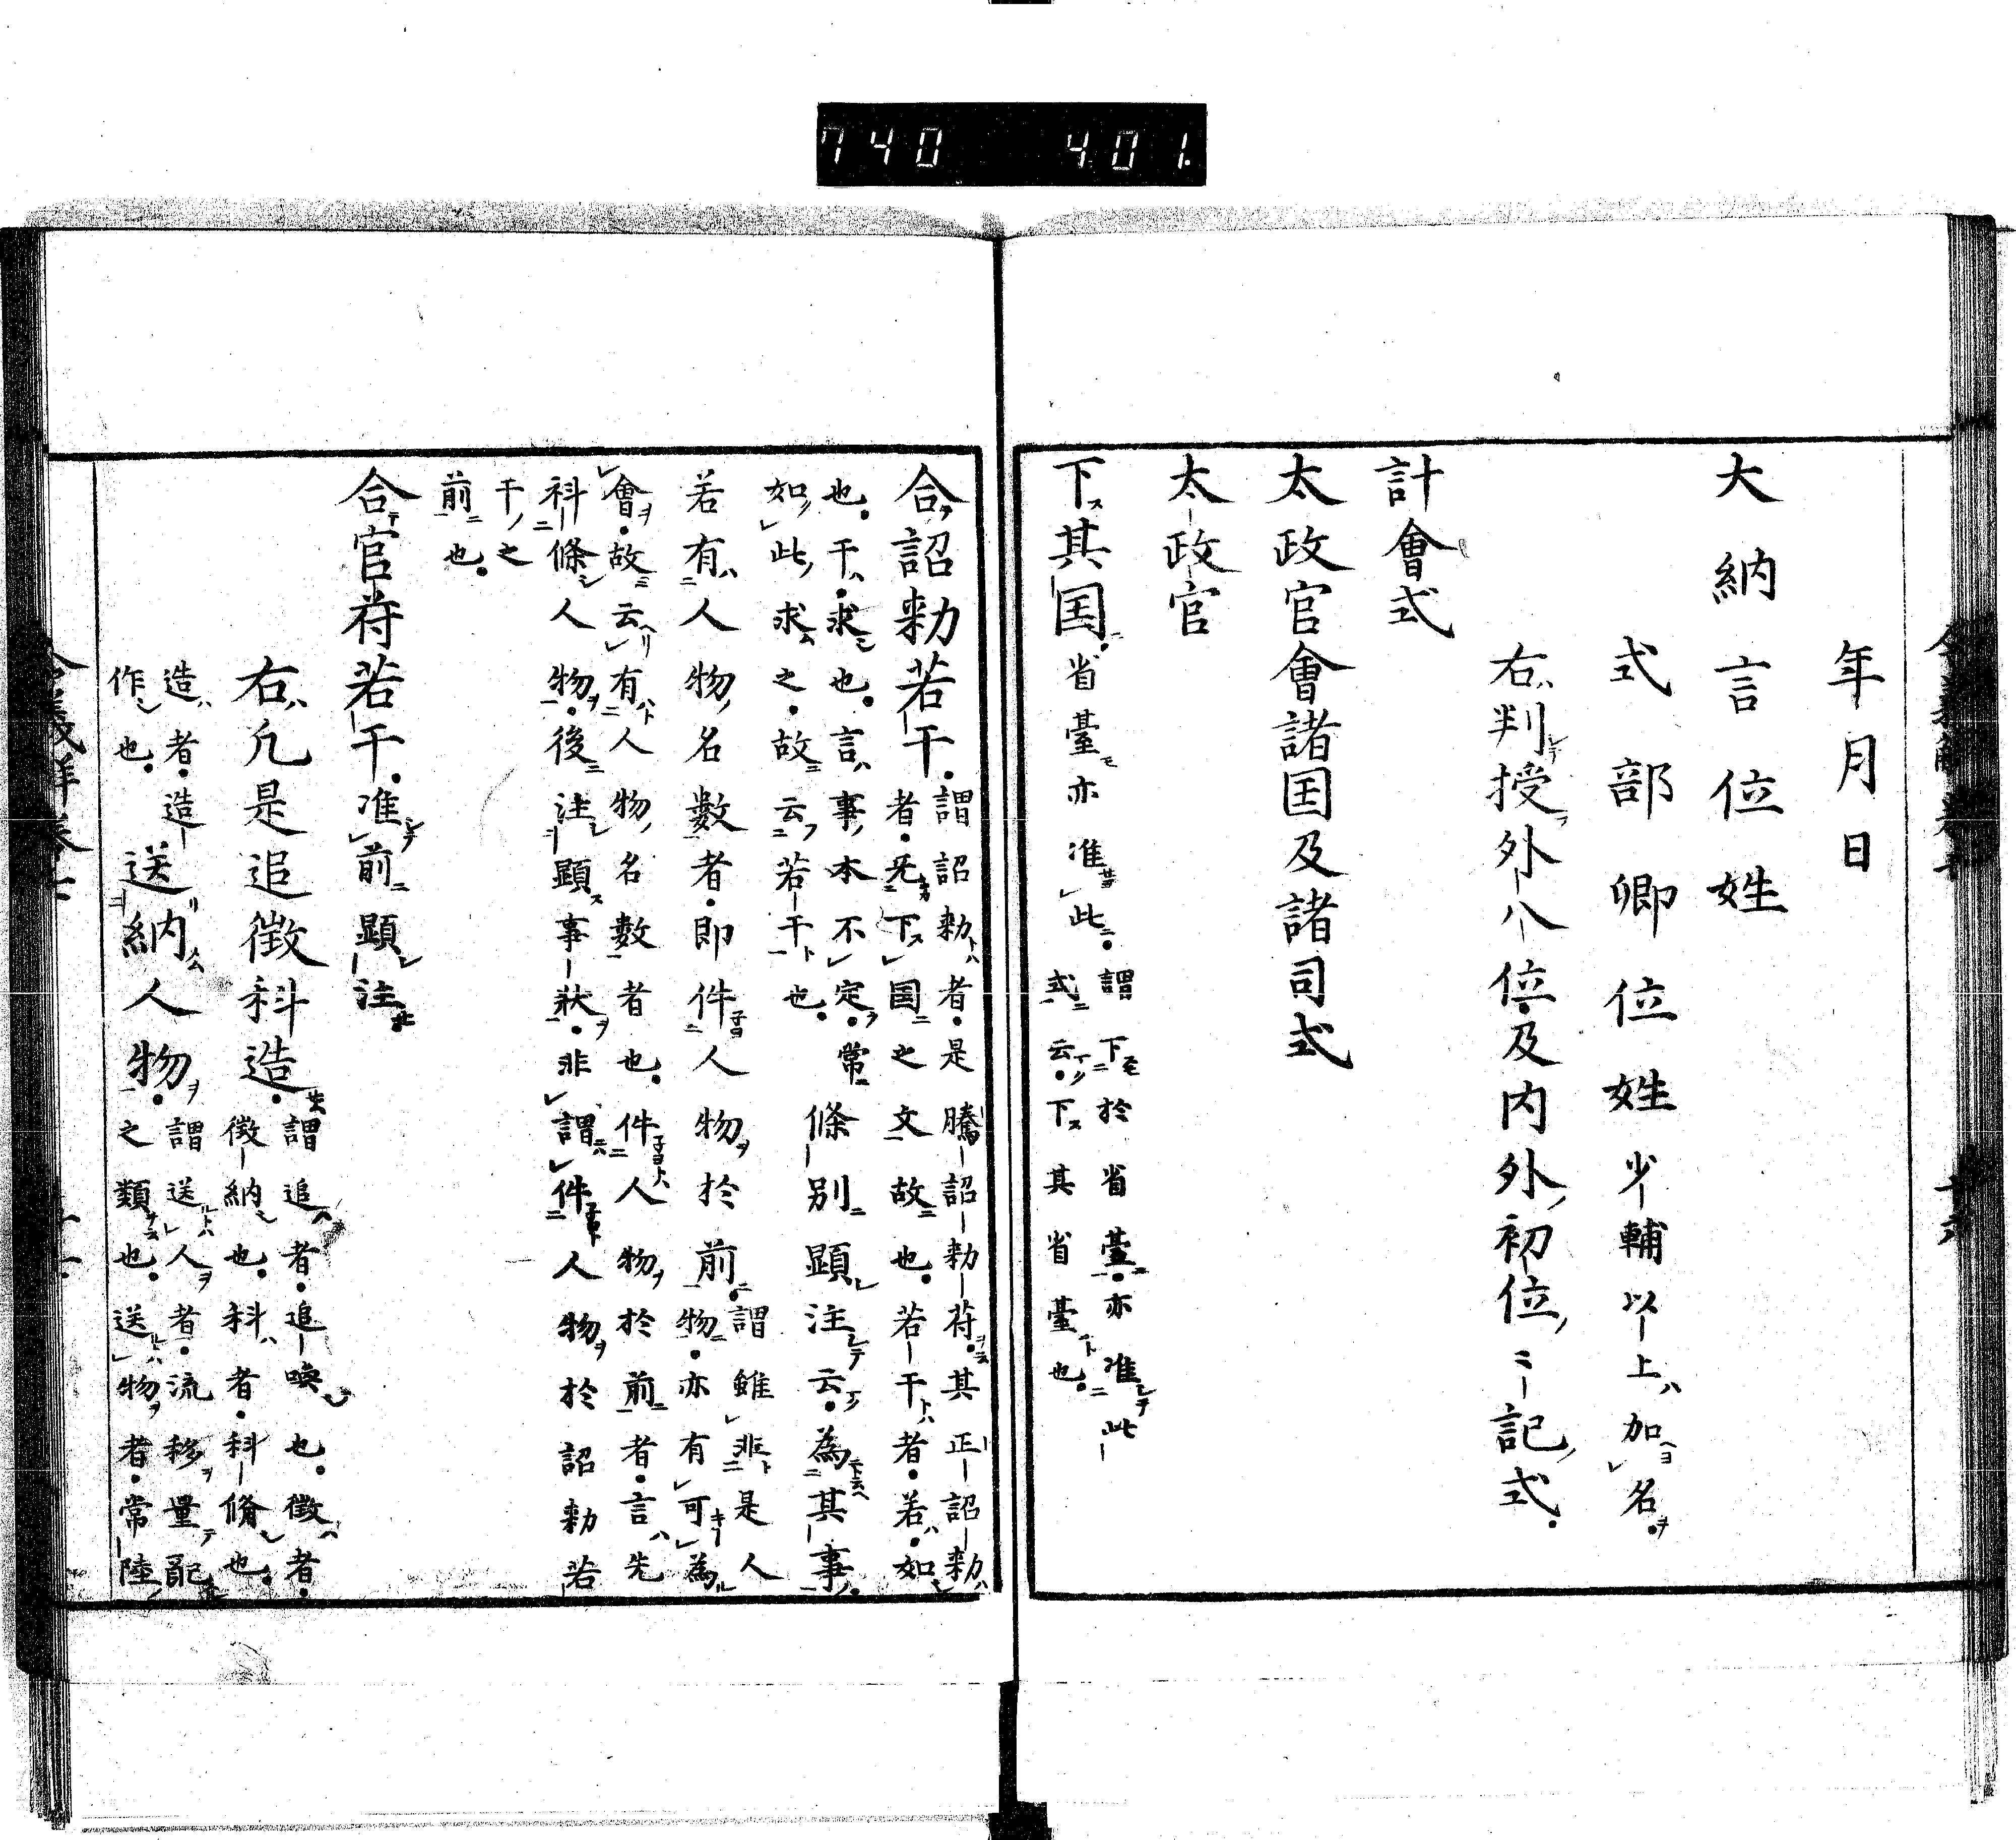 740 401.
年月日
大納言位姓
式部卿位姓少輔以上加名
右判授外八位及内外初位ニ記式
計會式
太政官會諸国及諸司式
太政官
下其国省臺亦准此謂下於省臺亦准此
式云下其省臺也
合詔勅若干謂詔勅者是騰詔勅符其正詔勅
者旡下国之文故也若干者若如
也干求也言事本不定常條別顕注云為其事
如此求之故云若干也
若有人物名數者即件人物於前謂雖非是人
物亦有可為
會故云有人物名數者也件人物於前者言先
科條人物後注顕事狀非謂件人物於詔勅若
干之
前也
合官符若干准前顕注
右凢是追徴科造謂追者追喚也徴者
徴納也科者科脩也
造者造
作也
送納人物謂送人者流移量配
之類也送物者常陸